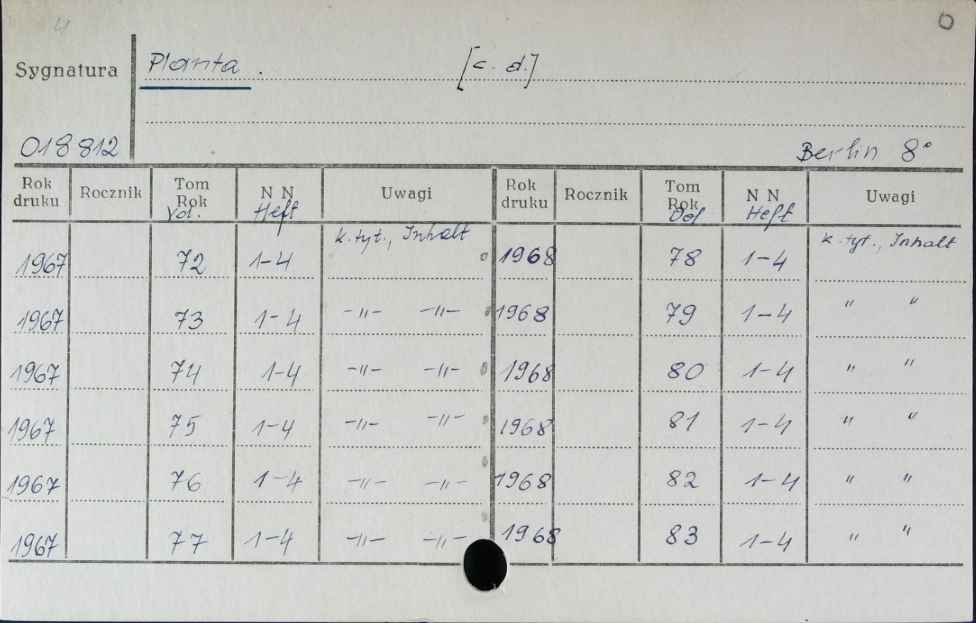 4 0
Sygnatura Planta. [c. d.]
018812 Berlin 8°
Rok druku Rocznik Tom Rok Vol. N N Heft Uwagi Rok druku Rocznik Tom Rok Vol N N Heft Uwagi
k. tyt., Inhalt k. tyt., Inhalt
1967 72 1-4 1968 78 1-4
1967 73 1-4 -"- -"- 1968 79 1-4 " "
1967 74 1-4 -"- -"- 1968 80 1-4 " "
1967 75 1-4 -"- -"- 1968 81 1-4 " "
1967 76 1-4 -"- -"- 1968 82 1-4 " "
1967 77 1-4 -"- -"- 1968 83 1-4 " "